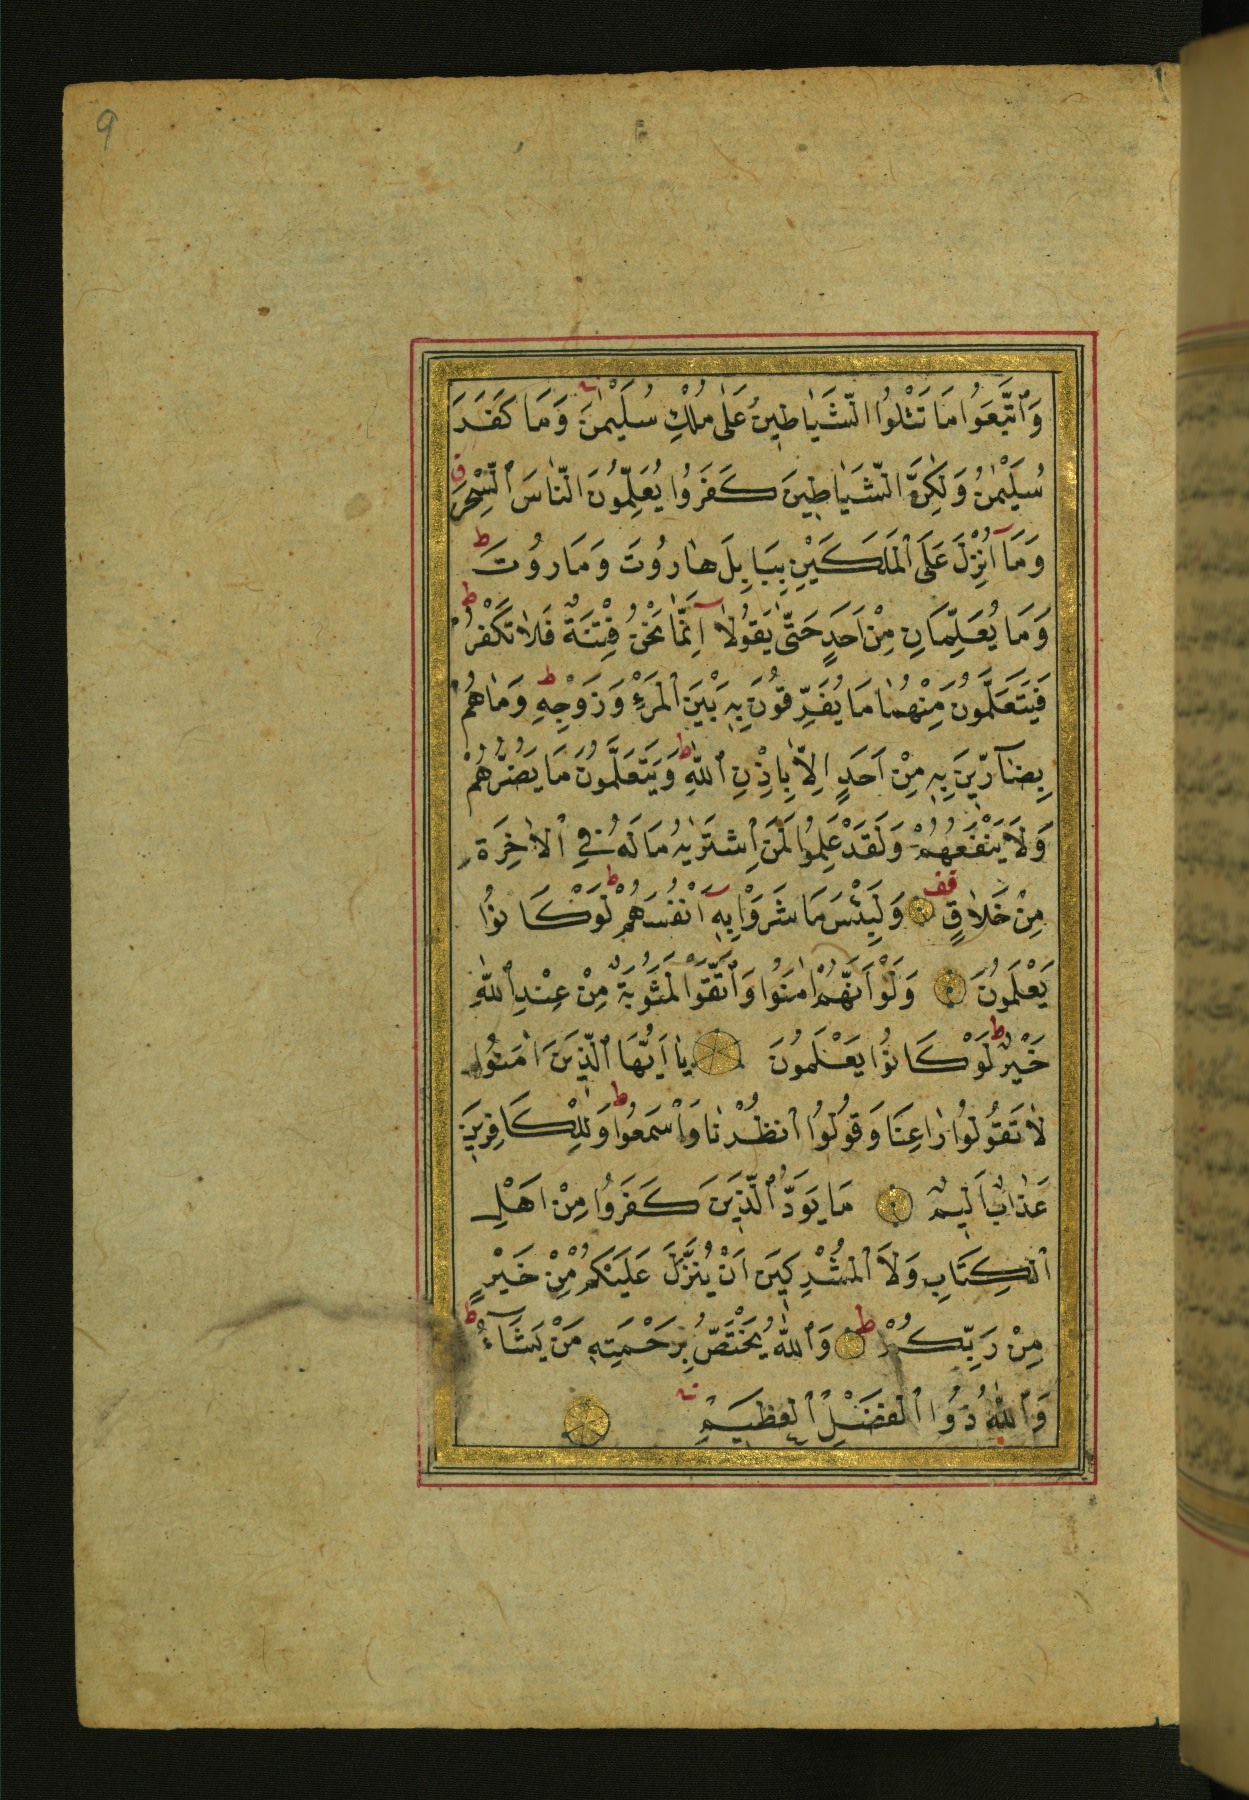 9
وَٱتَّبَعَوُا مَا تَتْلوُا الشَّيَاطِينُ عَلٰى مُلْكِ سُلَيْمٰنَ وَمَا كَفَرَ
سُلَيْمٰنُ وَلٰكِنَّ الشَّيَاطِينَ كَفَرُوا يُعَلِّمُونَ النَّاسَ ٱلسِّحْرَ ق
وَمَآ اُنْزِلَ عَلَى ٱلْمَلَكَيْنِ بِبَابِلَ هَارُوتَ وَمَارُوتَ ط
وَمَا يُعَلِّمَانِ مِنْ اَحَدٍ حَتّٰى يَقُولَآ اِنَّمَا نَحْنُ فِتْنَةٌ فَلَا تَكْفُرْ ط
فَيَتَعَلَّمُونَ مِنْهُمَا مَا يُفَرِّقوُنَ بِهٖ بَيْنَ ٱلْمَرْءِ وَزَوْجِهٖ ط وَمَاهُمْ
بِضَآرّٖينَ بِهٖ مِنْ اَحَدٍ اِلَّا بِاِذْنِ ٱللّٰهِ ط وَيَتَعَلَّمُونَ مَا يَضُرُّهُمْ
وَلَا يَنْفَعُهُمْ وَلَقَدْ عَلِمُوا لَمَنِ ٱشْتَرٰيهُ مَا لَهُ فِي ٱلْاٰخِرَةِ
مِنْ خَلَاقٍ قف وَلَبِئْسَ مَا شَرَوْا بِهٖٓ اَنْفُسَهُمْ ط لَوْ كَانوُا
يَعْلَمُونَ وَلَوْ اَنَّهُمْ اٰمَنُوا وَٱتَّقَوْا لَمَثُوبَةٌ مِنْ عِنْدِ ٱللّٰهِ
خَيْرٌ ط لَوْ كَانوُا يَعْلَمُونَ يَا اَيُّهَا ٱلَّذِينَ اٰمَنُوا
لَا تَقُولُوا رَاعِنَا وَقُولُوا ٱنْظُرْنَا وَٱسْمَعُوا ط وَلِلْكَافِرِينَ
عَذَابٌ اَلِيمٌ مَا يَوَدُّ ٱلَّذِينَ كَفَرُوا مِنْ اَهْلِ
ٱلْكِتَابِ وَلَا ٱلْمُشْرِكِينَ اَنْ يُنَزَّلَ عَلَيْكُمْ مِنْ خَيْرٍ
مِنْ رَبِّكُمْ ط وَٱللّٰهُ يَخْتَصُّ بِرَحْمَتِهٖ مَنْ يَشَآءُ ط
وَٱللّٰهُ ذُوُا ٱلْفَضْلِ ٱلْعَظِيمِ